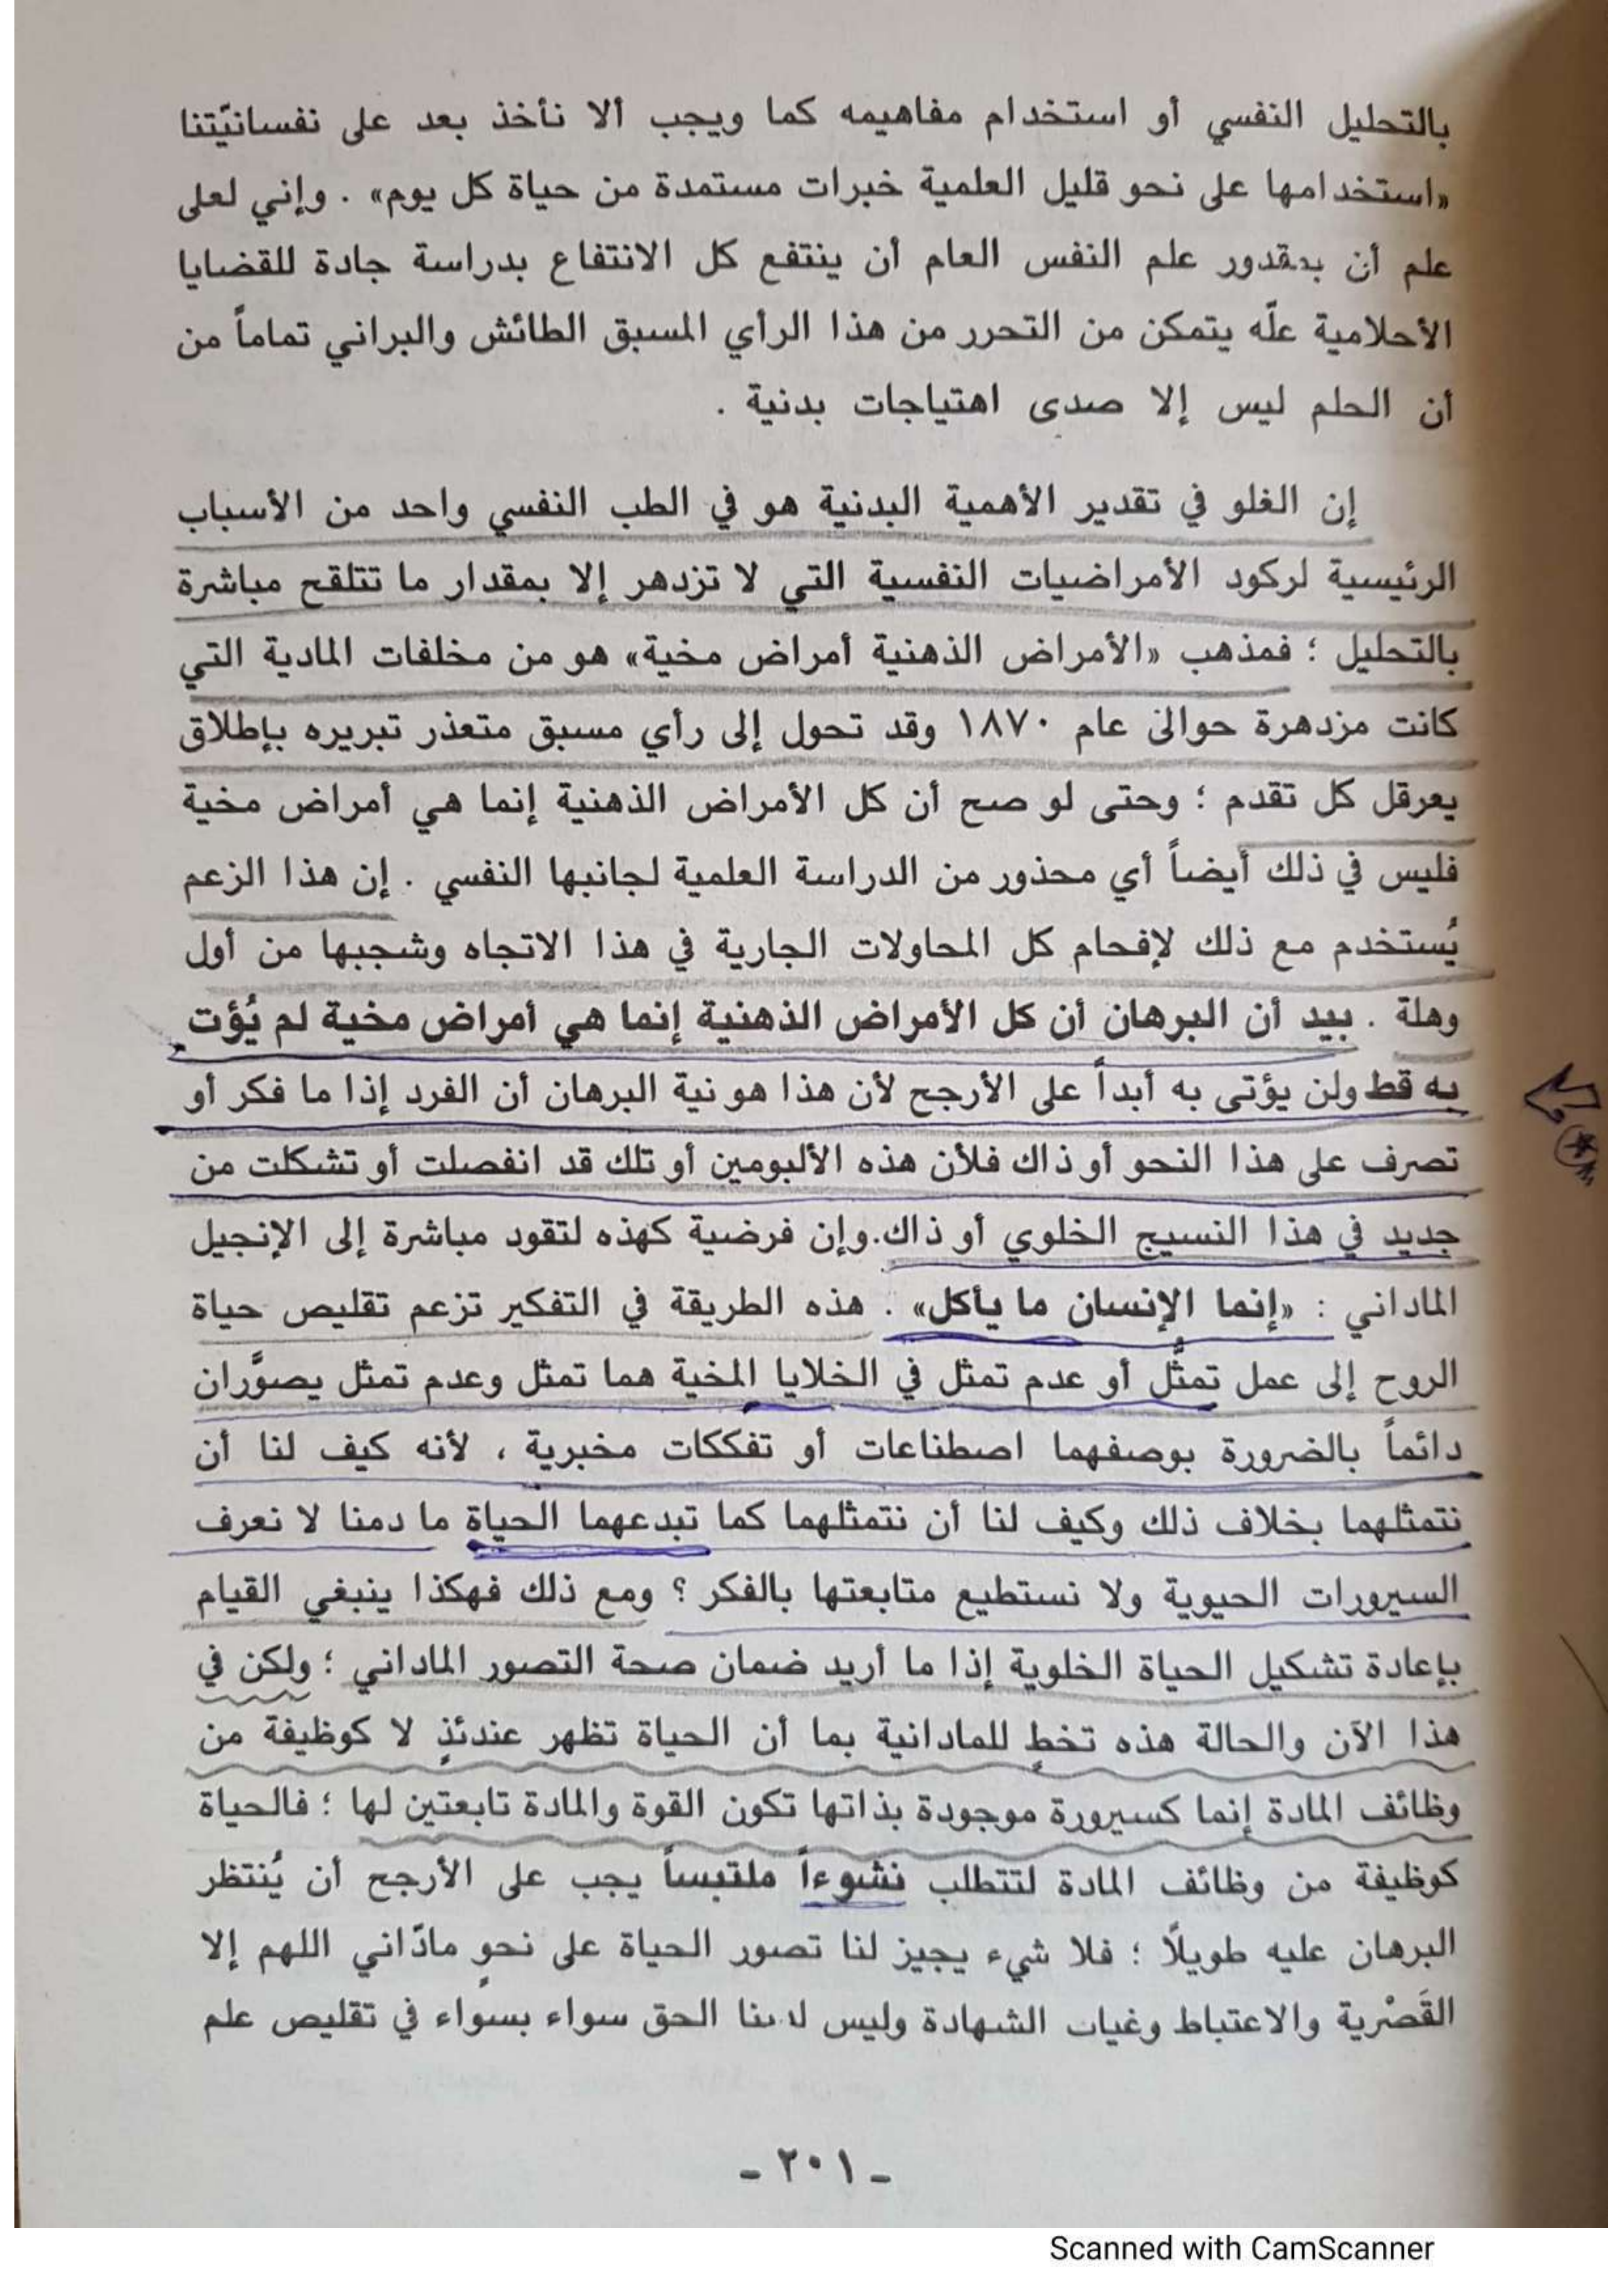 بالتحليل النفسي أو استخدام مفاهيمه كما ويجب ألا نأخذ بعد على نفسانيّتنا
«استخدامها على نحو قليل العلمية خبرات مستمدة من حياة كل يوم» . وإني لعلى
علم أن بمقدور علم النفس العام أن ينتفع كل الانتفاع بدراسة جادة للقضايا
الأحلامية علّه يتمكن من التحرر من هذا الرأي المسبق الطائش والبراني تماماً من
أن الحلم ليس إلا صدى اهتياجات بدنية .
إن الغلو في تقدير الأهمية البدنية هو في الطب النفسي واحد من الأسباب
الرئيسية لركود الأمراضيات النفسية التي لا تزدهر إلا بمقدار ما تتلقح مباشرة
بالتحليل ؛ فمذهب «الأمراض الذهنية أمراض مخية» هو من مخلفات المادية التي
كانت مزدهرة حوالى عام ١٨٧٠ وقد تحول إلى رأي مسبق متعذر تبريره بإطلاق
يعرقل كل تقدم ؛ وحتى لو صح أن كل الأمراض الذهنية إنما هي أمراض مخية
فليس في ذلك أيضاً أي محذور من الدراسة العلمية لجانبها النفسي . إن هذا الزعم
يُستخدم مع ذلك لإفحام كل المحاولات الجارية في هذا الاتجاه وشجبها من أول
وهلة . بيد أن البرهان أن كل الأمراض الذهنية إنما هي أمراض مخية لم يُؤت
به قط ولن يؤتى به أبداً على الأرجح لأن هذا هو نية البرهان أن الفرد إذا ما فكر أو
تصرف على هذا النحو أو ذاك فلأن هذه الألبومين أو تلك قد انفصلت أو تشكلت من
جديد في هذا النسيج الخلوي أو ذاك. وإن فرضية كهذه لتقود مباشرة إلى الإنجيل
الماداني : «إنما الإنسان ما يأكل» . هذه الطريقة في التفكير تزعم تقليص حياة
الروح إلى عمل تمثُّل أو عدم تمثل في الخلايا المخية هما تمثل وعدم تمثل يصوَّران
دائماً بالضرورة بوصفهما اصطناعات أو تفككات مخبرية ، لأنه كيف لنا أن
نتمثلهما بخلاف ذلك وكيف لنا أن نتمثلهما كما تبدعهما الحياة ما دمنا لا نعرف
السيرورات الحيوية ولا نستطيع متابعتها بالفكر ؟ ومع ذلك فهكذا ينبغي القيام
بإعادة تشكيل الحياة الخلوية إذا ما أريد ضمان صحة التصور الماداني ؛ ولكن في
هذا الآن والحالة هذه تخطٍ للمادانية بما أن الحياة تظهر عندئذٍ لا كوظيفة من
وظائف المادة إنما كسيرورة موجودة بذاتها تكون القوة والمادة تابعتين لها ؛ فالحياة
كوظيفة من وظائف المادة لتتطلب نشوءاً ملتبساً يجب على الأرجح أن يُنتظر
البرهان عليه طويلًا ؛ فلا شيء يجيز لنا تصور الحياة على نحوٍ مادّاني اللهم إلا
القَصْرية والاعتباط وغياب الشهادة وليس لدينا الحق سواء بسواء في تقليص علم
- ٢٠١ -
Scanned with CamScanner